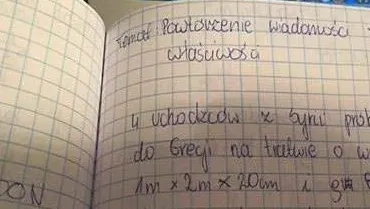 Temat Powtórzenie wiadomości
właściwości
4 uchodźców z Syrii
do Grecji na tratwie o
1m × 2m × 20cm i
DON